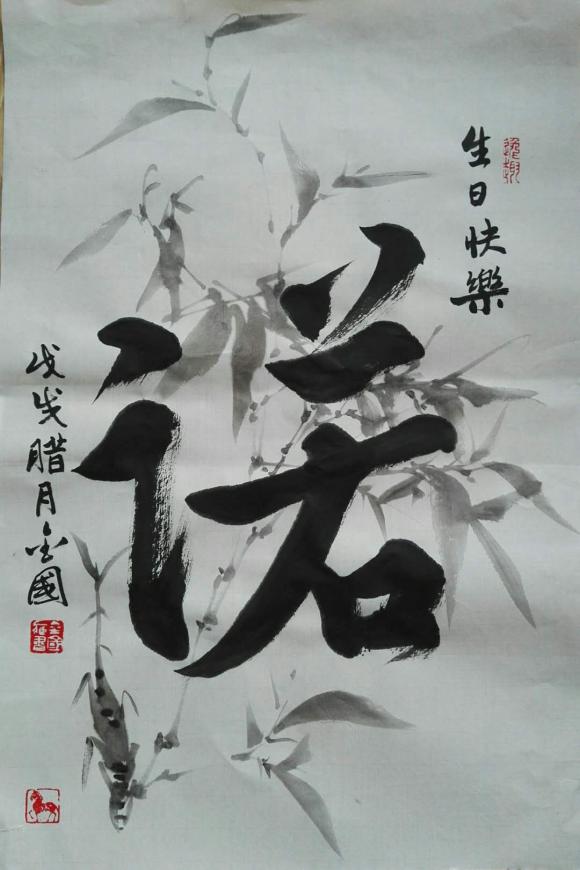 生日快樂
诺
戊戌腊月金國